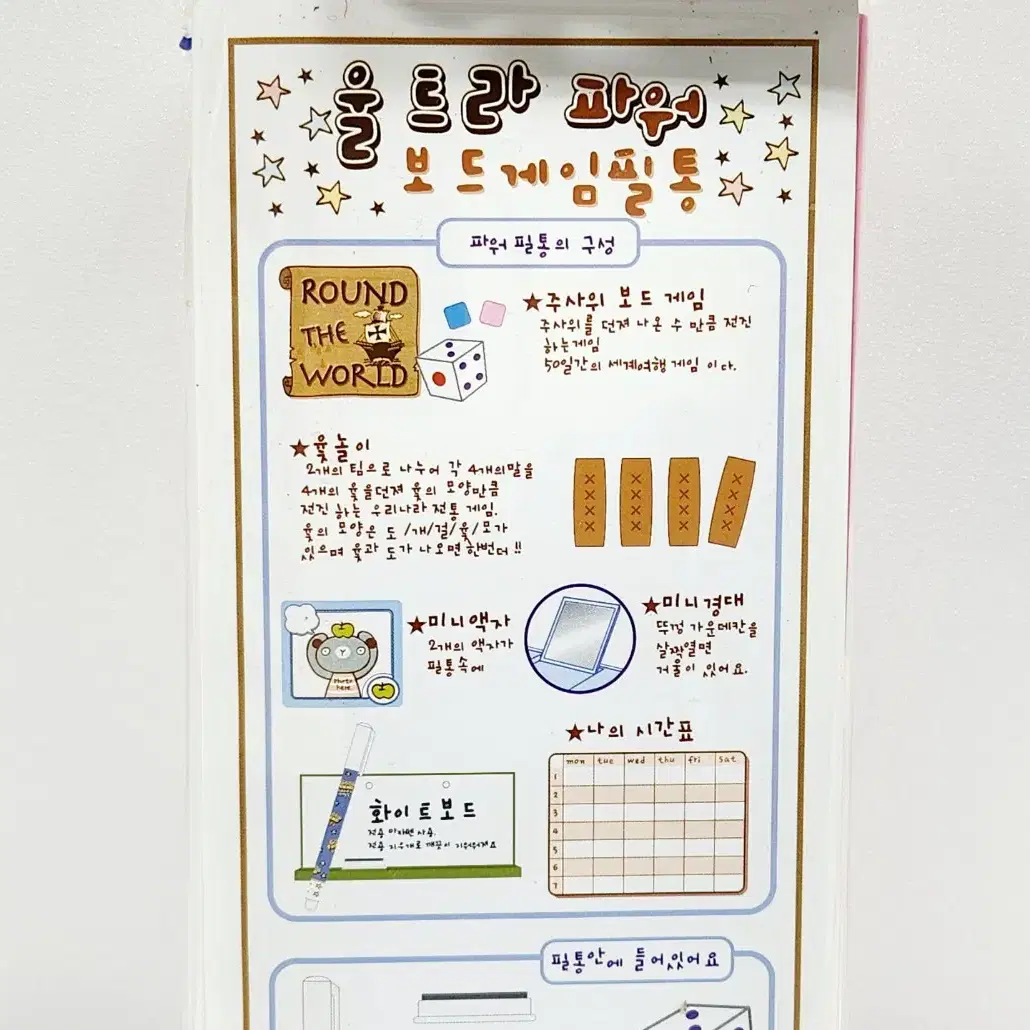 울트라 파워
보드게임필통
파워 필통의 구성
ROUND
THE
WORLD
★주사위 보드 게임
주사위를 던져 나온 수 만큼 전진
하는게임
50일간의 세계여행 게임 이다.
★윷놀이
2개의 팀으로 나누어 각 4개의말을
4개의 윷을던져 윷의 모양만큼
전진 하는 우리나라 전통 게임.
윷의 모양은 도/개/걸/윷/모가
있으며 윷과 도가 나오면 한번더!!
★미니액자
2개의 액자가
필통속에
Photo
here.
★미니경대
뚜껑 가운데칸을
살짝열면
거울이 있어요.
화이트보드
전용 마카펜 사용.
전용 지우개로 깨끗이 지워워져요
★나의 시간표
mon tue wed thu fri sat
1
2
3
4
5
6
7
필통안에 들어있어요